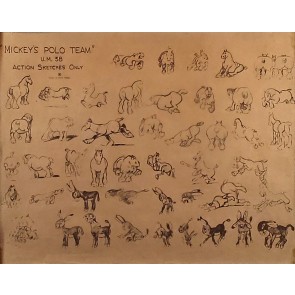 "MICKEY'S POLO TEAM"
U.M. 38
ACTION SKETCHES ONLY